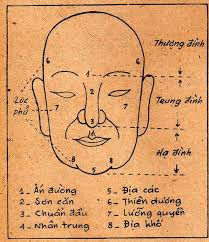 Thượng đình
6
6
1
Lục phủ
2
Trung đình
7
7
3
4
Hạ đình
5
8
8
1_ Ấn đường
2_ Sơn căn
3_ Chuẩn đầu
4_ Nhân trung
5_ Địa các
6_ Thiên dương
7_ Lưỡng quyền
8_ Địa khố